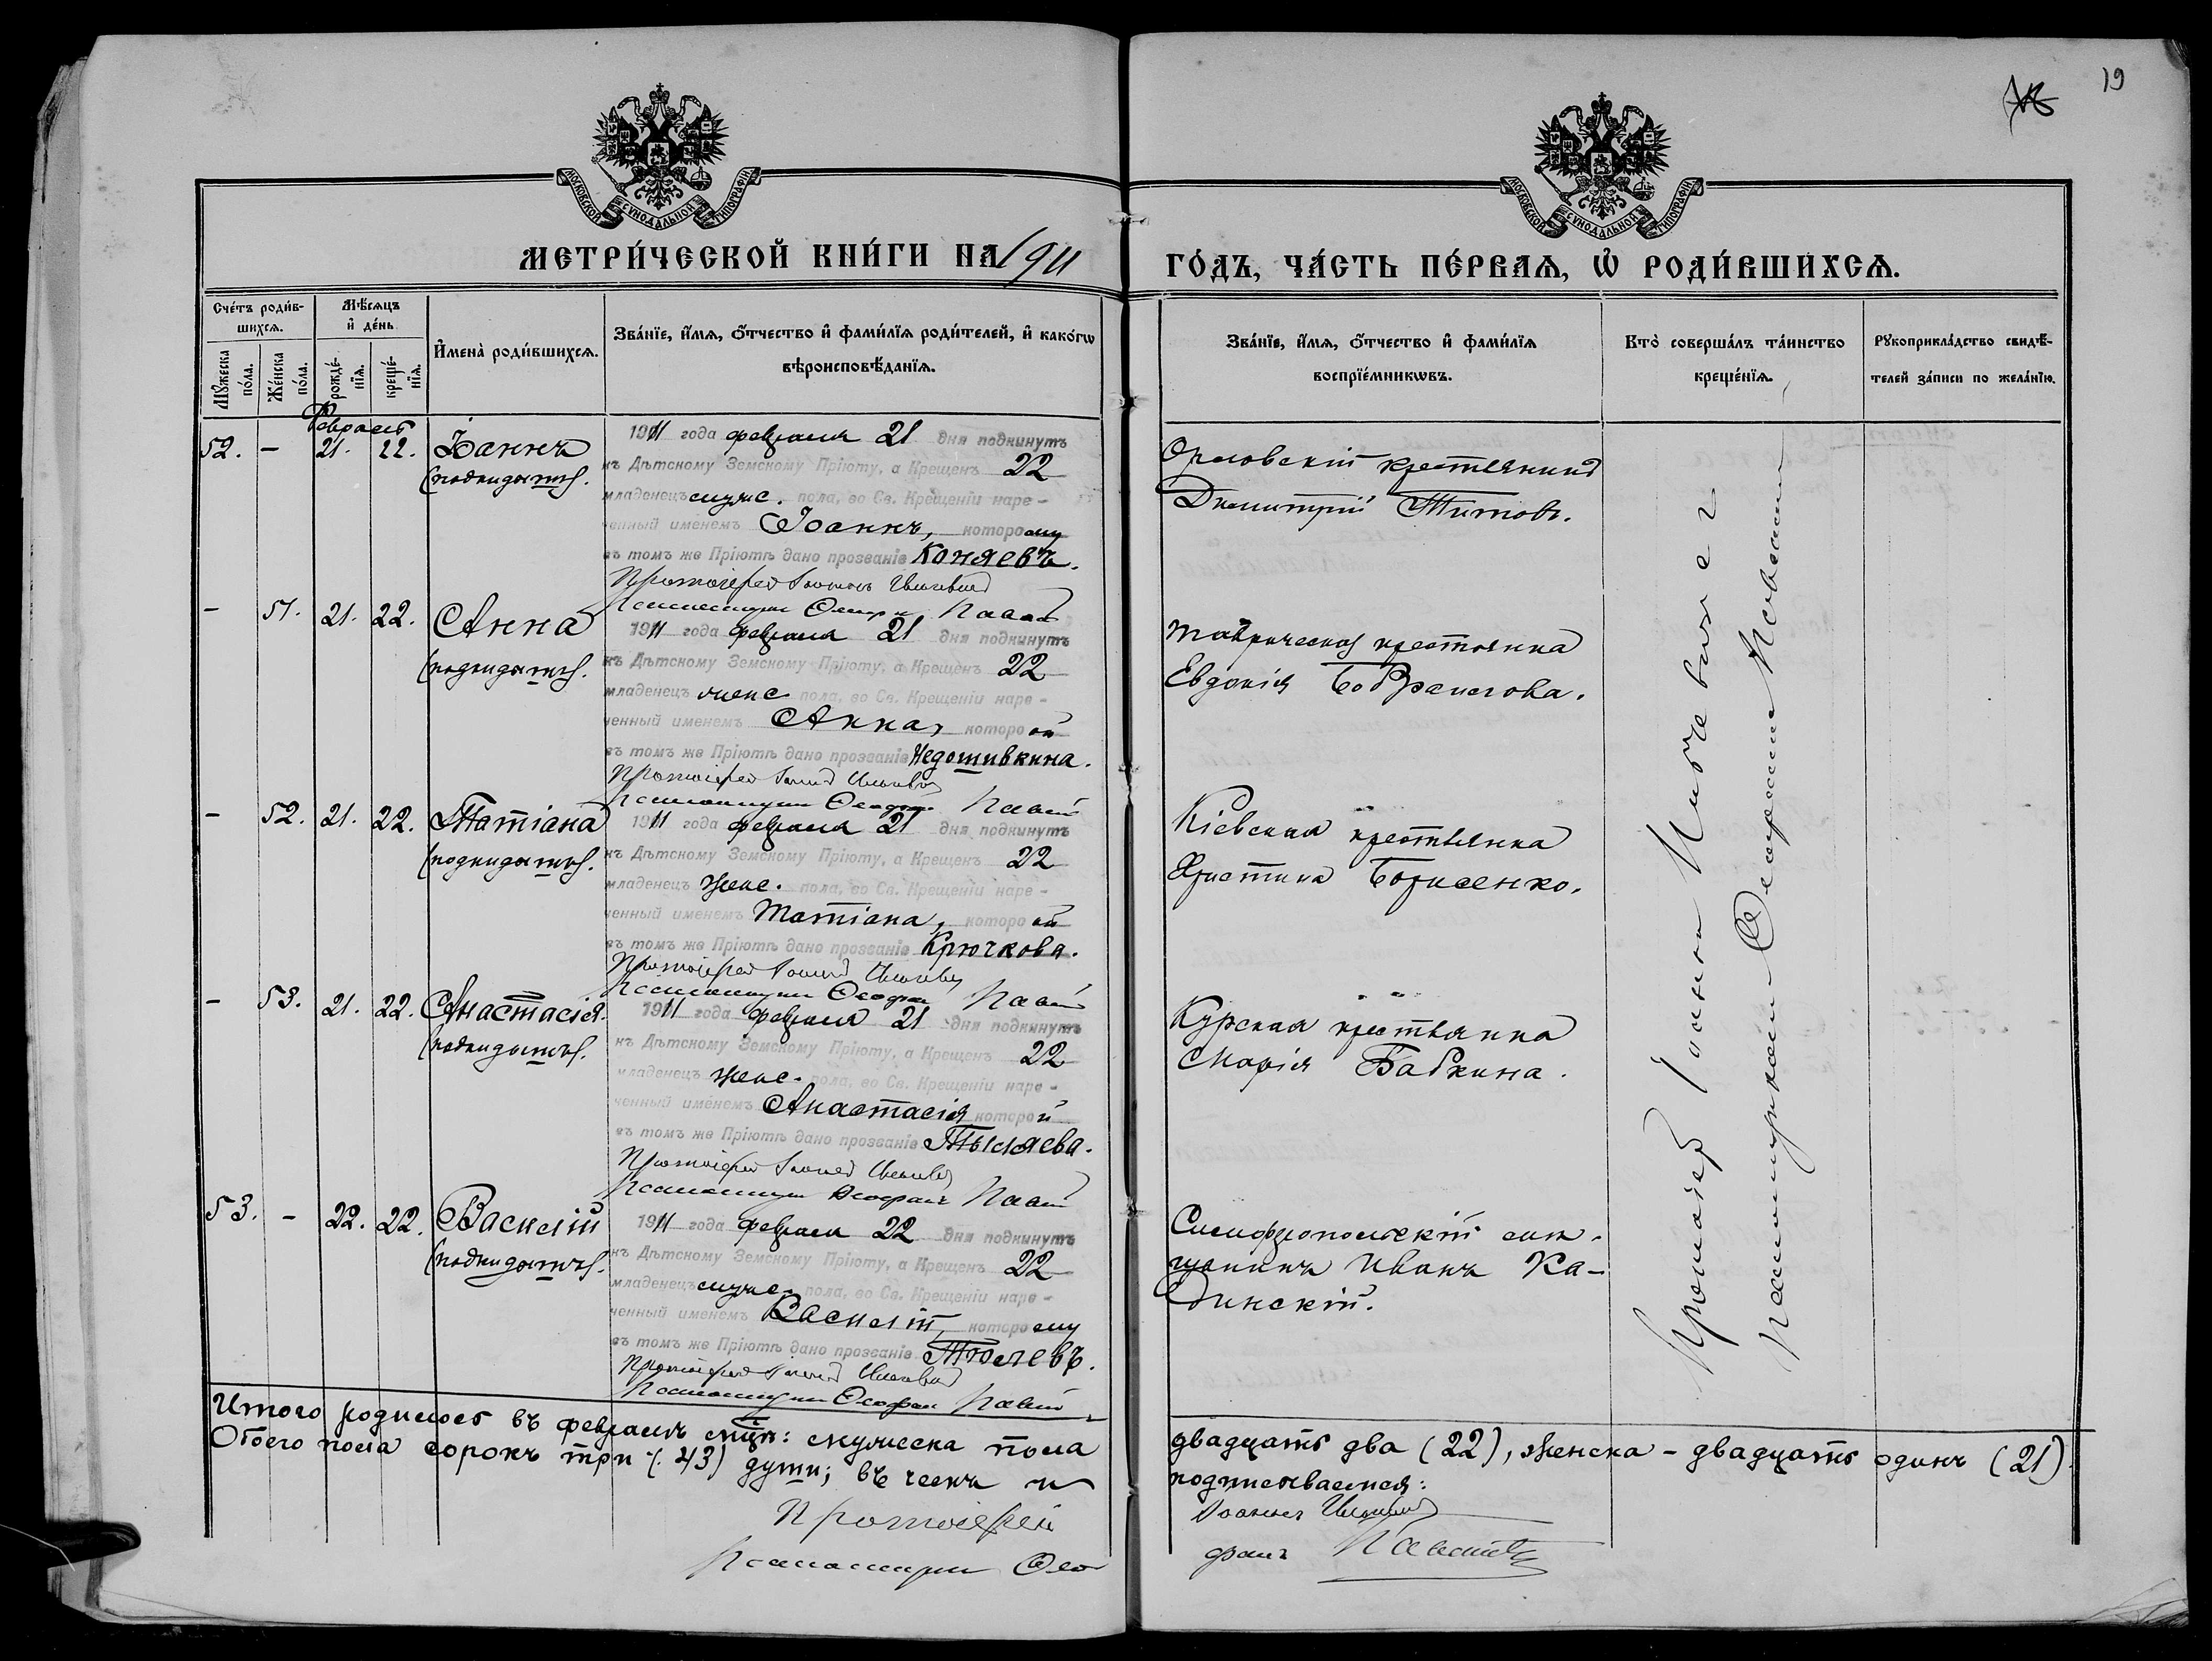 19
МОСКОВСКОЙ СѴНОДАЛЬНОЙ ТИПОГРАФІИ
МОСКОВСКОЙ СѴНОДАЛЬНОЙ ТИПОГРАФІИ
МЕТРИ́ЧЕСКОЙ КНИ́ГИ НА 1911 ГО́ДЪ, ЧА́СТЬ ПЕ́РВАѦ, Ѡ҆ РОДИ́ВШИХСѦ.
Сче́тъ роди́в-
шихсѧ.
Мꙋ́жеска по́ла.
Же́нска по́ла.
Мѣ́сѧцъ
и҆ де́нь
рожде́-
нїѧ.
креще́-
нїѧ.
И҆мена̀ роди́вшихсѧ.
Зва́нїе, и҆́мѧ, ѻ҆́тчество и҆ фами́лїѧ роди́телей, и҆ како́гѡ
вѣроисповѣ́данїѧ.
Зва́нїе, и҆́мѧ, ѻ҆́тчество и҆ фами́лїѧ
воспрїе́мникѡвъ.
Кто̀ соверша́лъ та́инство
креще́нїѧ.
Рꙋкоприкла́дство свидѣ́-
телей за́писи по жела́нїю.
Февраль
52. - 21. 22. Іоаннъ
(подкидышъ).
1911 года февраля 21 дня подкинутъ
къ Дѣтскому Земскому Пріюту, а Крещенъ 22
младенецъ муже. пола, во Св. Крещеніи наре-
ченный именемъ Іоаннъ, которому
въ томъ же Пріютѣ дано прозваніе Коняевъ.
Протоіерей Іоаннъ
Псаломщикъ Ѳеофанъ
Орловскій крестьянинъ
Димитрій Титовъ.
- 51. 21. 22. Анна
(подкидышъ).
1911 года февраля 21 дня подкинутъ
къ Дѣтскому Земскому Пріюту, а Крещенъ 22
младенецъ женс пола, во Св. Крещеніи наре-
ченный именемъ Анна, которой
въ томъ же Пріютѣ дано прозваніе Недошивкина.
Протоіерей Іоаннъ
Псаломщикъ Ѳеофанъ
Таврическая крестьянка
Евдокія
- 52. 21. 22. Татіана
(подкидышъ).
1911 года февраля 21 дня подкинутъ
къ Дѣтскому Земскому Пріюту, а Крещенъ 22
младенецъ женс. пола, во Св. Крещеніи наре-
ченный именемъ Татіана, которой
въ томъ же Пріютѣ дано прозваніе Крючкова.
Протоіерей Іоаннъ
Псаломщикъ Ѳеофанъ
Кіевская крестьянка
Христина Борисенко.
- 53. 21. 22. Анастасія.
(подкидышъ).
1911 года февраля 21 дня подкинутъ
къ Дѣтскому Земскому Пріюту, а Крещенъ 22
младенецъ женс. пола, во Св. Крещеніи наре-
ченный именемъ Анастасія которой
въ томъ же Пріютѣ дано прозваніе
Протоіерей Іоаннъ
Псаломщикъ Ѳеофанъ
Курская крестьянка
Марія Бабкина.
53. - 22. 22. Василій
(подкидышъ).
1911 года февраля 22 дня подкинутъ
къ Дѣтскому Земскому Пріюту, а Крещенъ 22
младенецъ мужс. пола, во Св. Крещеніи наре-
ченный именемъ Василій, которому
въ томъ же Пріютѣ дано прозваніе
Протоіерей Іоаннъ
Псаломщикъ Ѳеофанъ
Симферопольскій мѣ-
щанинъ Иванъ Ка-
бинскій.
Протоіерей Іоаннъ
Псаломщикъ Ѳеофанъ
Итого родилось въ февралѣ мцѣ: мужеска пола двадцать два (22), женска - двадцать одинъ (21)
Обоего пола сорокъ три (43) души; въ чемъ и подписываемся:
Протоіерей Іоаннъ
Псаломщикъ Ѳеофанъ